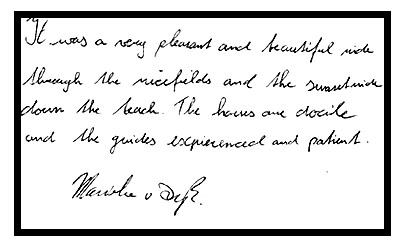 It was a very pleasant and beautiful ride
through the ricefields and the sunset ride
down the beach. The horses are docile
and the guides experienced and patient.
Marieke v